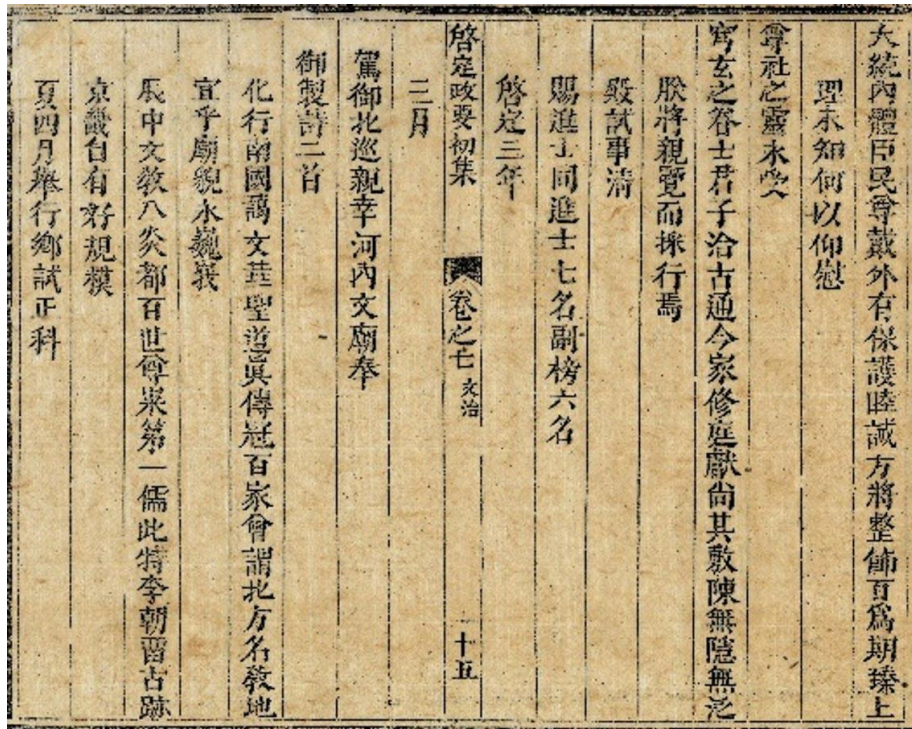 大統內體臣民尊戴外有保護睦誠方將整飭百爲期臻上
理未知何以仰慰
尊社之靈永受
穹玄之眷士君子洽古通今家修庭獻尙其敷陳無隱無泛
朕將親覽而採行焉
殿試事清
賜進士同進士七名副榜六名
啓定三年
啓定政要初集 卷之七 文治 十五
二月
駕御北巡親幸河內文廟奉
御製詩二首
化行南國謁文莚聖道眞傳冠百家曾謂北方名教地
宜乎廟貌永巍峩
辰中文教八炎都百世尊崇第一儒此特李朝畱古跡
京畿自有好規模
夏四月舉行鄉試正科